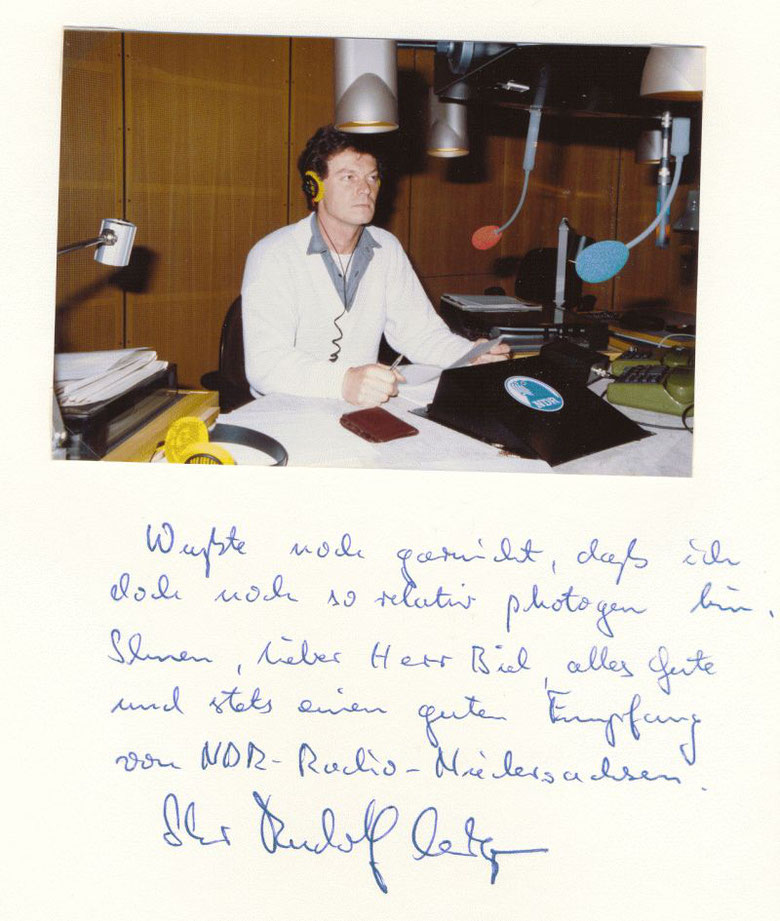 NDR
Wußte noch garnicht, daß ich
doch noch so relativ photogen bin.
Ihnen, lieber Herr Biel, alles Gute
und stets einen guten Empfang
von NDR-Radio-Niedersachsen.
Ihr Rudolf